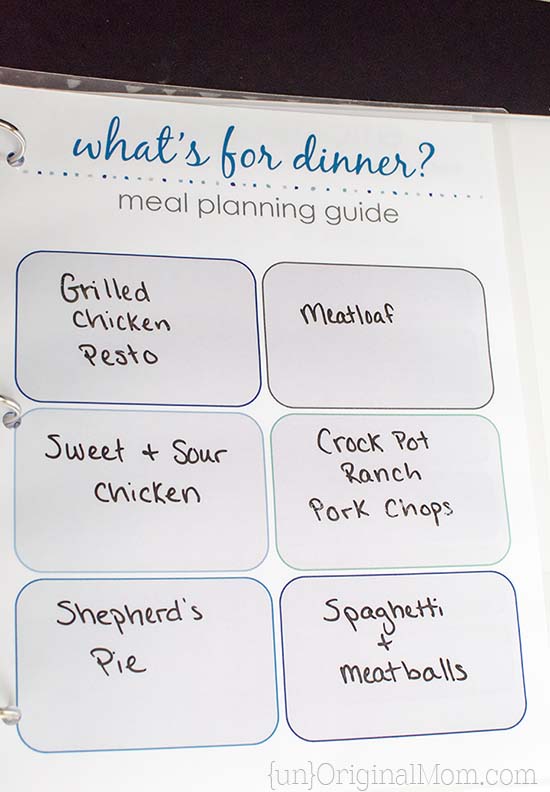 what's for dinner?
meal planning guide
Grilled
Chicken
Pesto
Meatloaf
Sweet + Sour
Chicken
Crock Pot
Ranch
Pork Chops
Shepherd's
Pie
Spaghetti
+
Meatballs
{un}OriginalMom.com